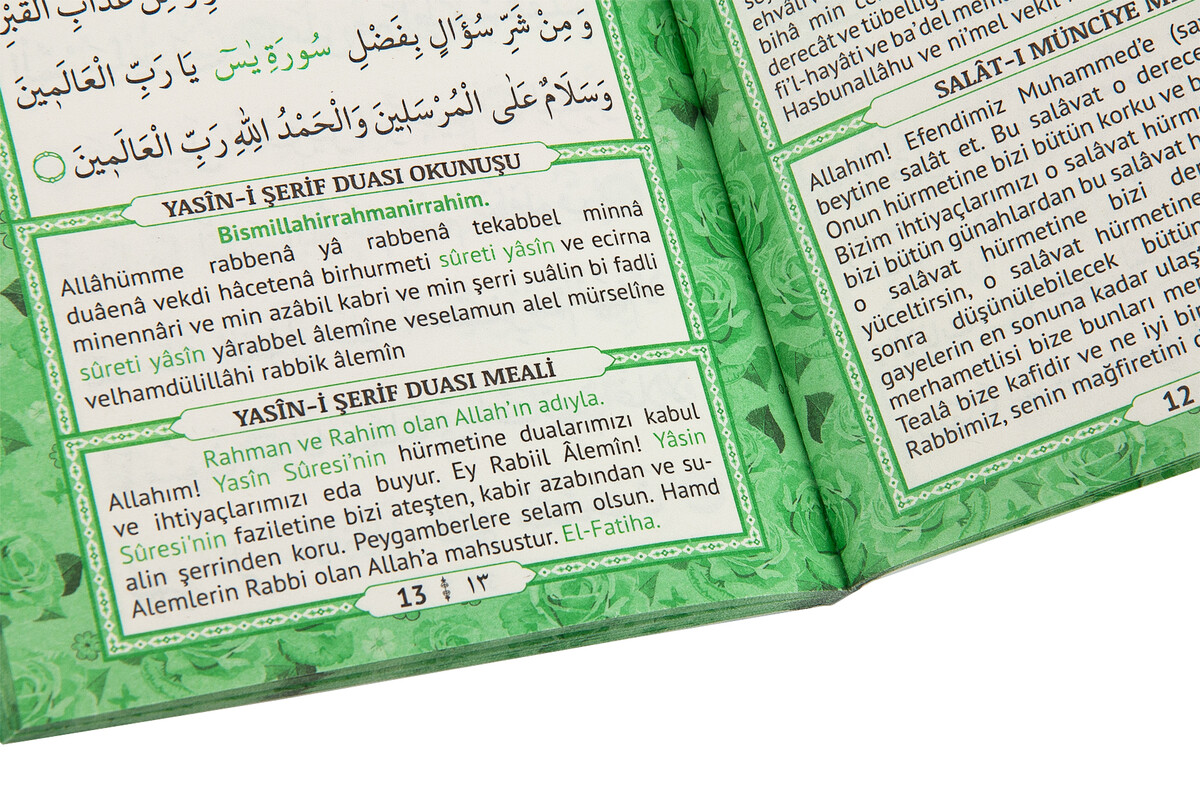 وَ مِنْ شَرِّ سُؤَالٍ بِفَضْلِ سُورَةِ يٰسٓ يَا رَبِّ الْعَالَمٖينَ
وَسَلَامٌ عَلَى الْمُرْسَلٖينَ وَالْحَمْدُ اللّٰهِ رَبِّ الْعَالَمٖينَ
YASÎN-İ ŞERİF DUASI OKUNUŞU
Bismillahirrahmanirrahim.
Allâhümme rabbenâ yâ rabbenâ tekabbel minnâ
duâenâ vekdi hâcetenâ birhurmeti sûreti yâsîn ve ecirna
minennâri ve min azâbil kabri ve min şerri suâlin bi fadli
sûreti yâsîn yârabbel âlemîne veselamun alel mürselîne
velhamdülillâhi rabbik âlemîn
YASÎN-İ ŞERİF DUASI MEALİ
Rahman ve Rahim olan Allah'ın adıyla.
Allahım! Yasîn Sûresi'nin hürmetine dualarımızı kabul
ve ihtiyaçlarımızı eda buyur. Ey Rabiil Âlemîn! Yâsin
Sûresi'nin faziletine bizi ateşten, kabir azabından ve su-
alin şerrinden koru. Peygamberlere selam olsun. Hamd
Alemlerin Rabbi olan Allah'a mahsustur. El-Fatiha.
13 ١٣
ehvâli
bihâ min
derecât ve tübelliga
fi'l-hayâti ve ba'del mem
Hasbunallâhu ve ni'mel vekîl
SALÂT-I MÜNCİYE
Allahım! Efendimiz Muhammed'e
beytine salât et. Bu salâvat o derece
Onun hürmetine bizi bütün korku ve
Bizim ihtiyaçlarımızı o salâvat hürm
bizi bütün günahlardan bu salâvat
o salâvat hürmetine bizi
yüceltirsin, o salâvat hürmetine
sonra düşünülebilecek bütün
gayelerin en sonuna kadar ulaş
merhametlisi bize bunları
Teala bize kafidir ve ne iyi bir
Rabbimiz, senin mağfiretini
12